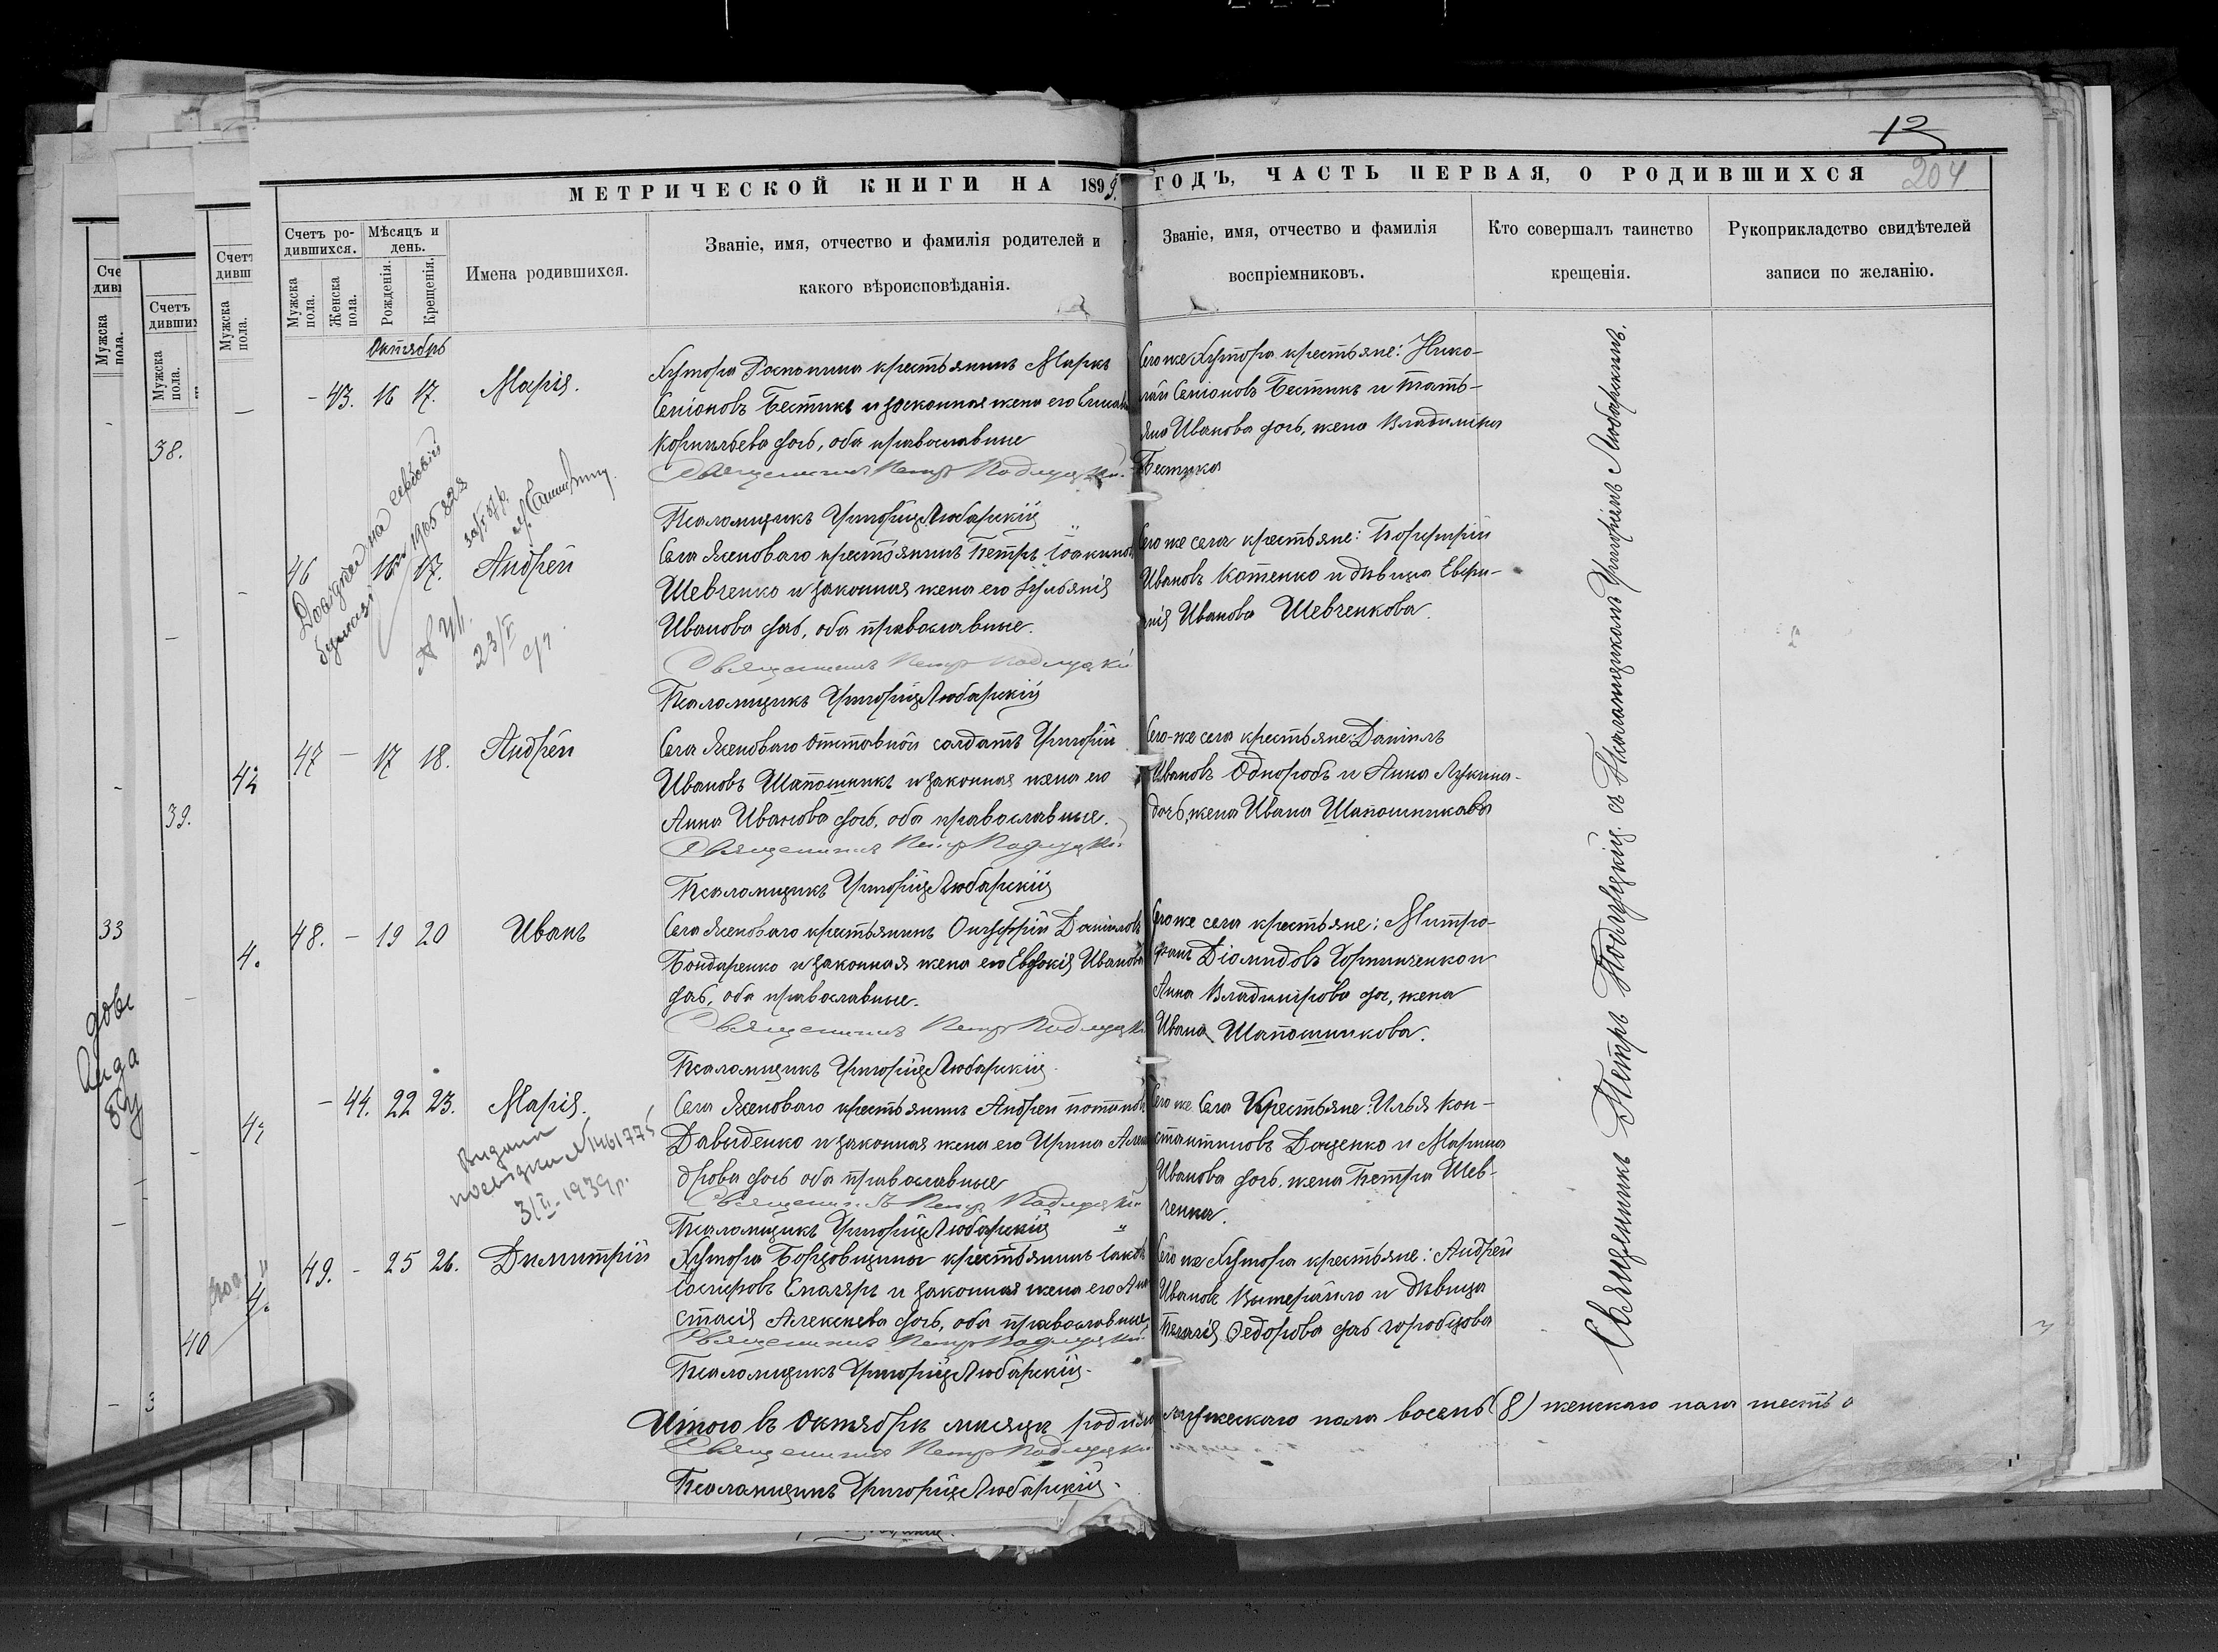 12
204
МЕТРИЧЕСКОЙ КНИГИ НА 1899 ГОДЪ, ЧАСТЬ ПЕРВАЯ, О РОДИВШИХСЯ
Счетъ ро-
дившихся.
Мужска
пола.
Женска
пола.
Мѣсяцъ и
день.
Рожденія.
Крещенія.
Имена родившихся.
Званіе, имя, отчество и фамилія родителей и
какого вѣроисповѣданія.
Званіе, имя, отчество и фамилія
воспріемниковъ.
Кто совершалъ таинство
крещенія.
Рукоприкладство свидѣтелей
записи по желанію.
Октябрь
- 43. 16 17. Марія.
Хутора крестьянинъ Маркъ
Семіоновъ Бестикъ и законная жена его
Корнильева дочь, оба православные
Священникъ Петръ Подлуцкій
Псаломщикъ Григорій Любарскій
Сего же Хутора крестьяне: Нико-
лай Семіоновъ Бестикъ и Тать-
яна Иванова дочь, жена Владиміра
Бестика
46 16 17. Андрей
Села Ясеноваго крестьянинъ Петръ Іоакимовъ
Шевченко и законная жена его Іуліанія
Иванова дочь, оба православные.
Священникъ Петръ Подлуцкій
Псаломщикъ Григорій Любарскій
Сего же села крестьяне: Порфирій
Ивановъ Котенко и дѣвица Евфи-
мія Иванова Шевченкова.
23/V
47 - 17 18. Андрей
Села Ясеноваго отставной солдатъ Григорій
Ивановъ Шапошникъ и законная жена его
Анна Иванова дочь, оба православные.
Священникъ Петръ Подлуцкій
Псаломщикъ Григорій Любарскій
Сего-же села крестьяне: Даніилъ
Ивановъ Однорогъ и Анна Лукина
дочь, жена Ивана Шапошникова
48. - 19 20 Иванъ
Села Ясеноваго крестьянинъ Онуфрій Даніиловъ
Бондаренко и законная жена его Евдокія Иванова
дочь, оба православные.
Священникъ Петръ Подлуцкій
Псаломщикъ Григорій Любарскій
Сего же села крестьяне: Митро-
фанъ Діомидовъ и
Анна Владимірова доч, жена
Ивана Шапошникова.
- 44. 22 23. Марія.
Видана
посвідка № 1461775
3/II-1939р.
Села Ясеноваго крестьянинъ Андрей Потаповъ
Давиденко и законная жена его Ирина Алексан
дрова дочь оба православные
Священникъ Петръ Подлуцкій
Псаломщикъ Григорій Любарскій
Сего же Села Крестьяне: Илья Кон-
стантиновъ Даценко и Марина
Иванова дочь, жена Петра Шев-
ченка.
49. - 25 26. Димитрій
Хутора Борзовщины крестьянинъ Іаковъ
Іосифовъ и законная жена его Ана
стасія Алексѣева дочь, оба православные
Священникъ Петръ Подлуцкій
Псаломщикъ Григорій Любарскій
Сего же Хутора крестьяне: Андрей
Ивановъ и дѣвица
Пелагія Федорова дочь
Священникъ Петръ Подлуцкій съ Псаломщикомъ Григоріемъ Любарскимъ.
Итого въ Октябрѣ мѣсяцѣ родилось мужескаго пола восемь (8) женскаго пола шесть
Священникъ Петръ Подлуцкій
Псаломщикъ Григорій Любарскій
38.
39.
33
40